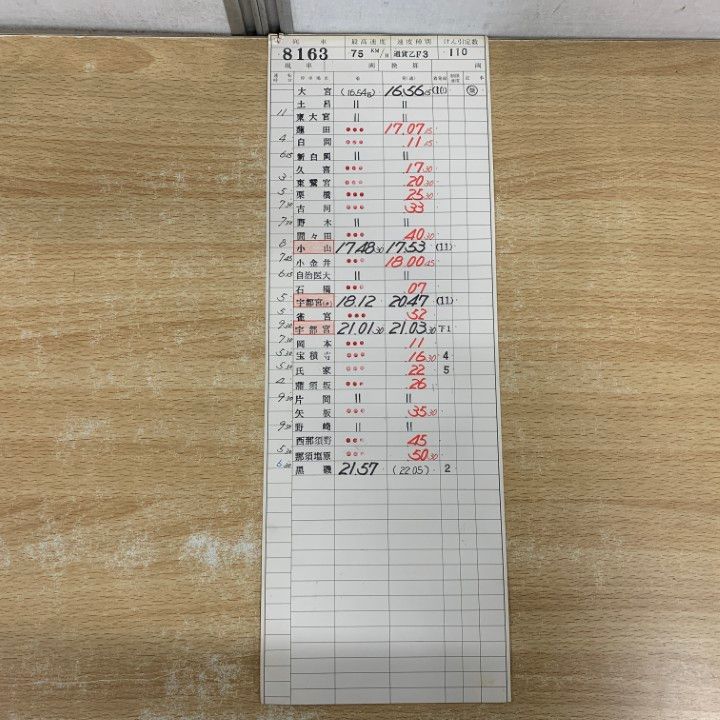 列車 最高速度 速度種別 けん引定数
8163 75 KM/H 通貨乙F3 110
現車 両 換算 両
停車場名 着 発(通) 着発線 制限速度 記事
大宮 (16.54 16.56 15 (10)
土呂 || ||
11 東大宮 || ||
蓮田 ••• 17.07 15
4 白岡 ••• .11 15
6 45 新白岡 || ||
久喜 ••• 17 30
3 東鷲宮 ••• 20 30
5 栗橋 ••• 25 30
7 30 古河 ••• 33
7 30 野木 || ||
間々田 ••• 40 30
8 小山 17.48 30 17.53 (11)
7 45 小金井 ••• 18.00 45
6 15 自治医大 || ||
石橋 ••• .07
5 宇都宮(タ) 18.12 20.47 (11)
5 雀宮 ••• 52
9 30 宇都宮 21.01 30 21.03 30 下1
7 30 岡本 ••• .11
5 30 宝積寺 ••• 16 30 4
5 30 氏家 ••• 22 5
4 蒲須坂 ••• 26
9 30 片岡 || ||
矢板 ••• 35 30
9 30 野崎 || ||
西那須野 ••• 45
5 30 那須塩原 ••• 50 30
6 30 黒磯 21.57 (22.05) 2